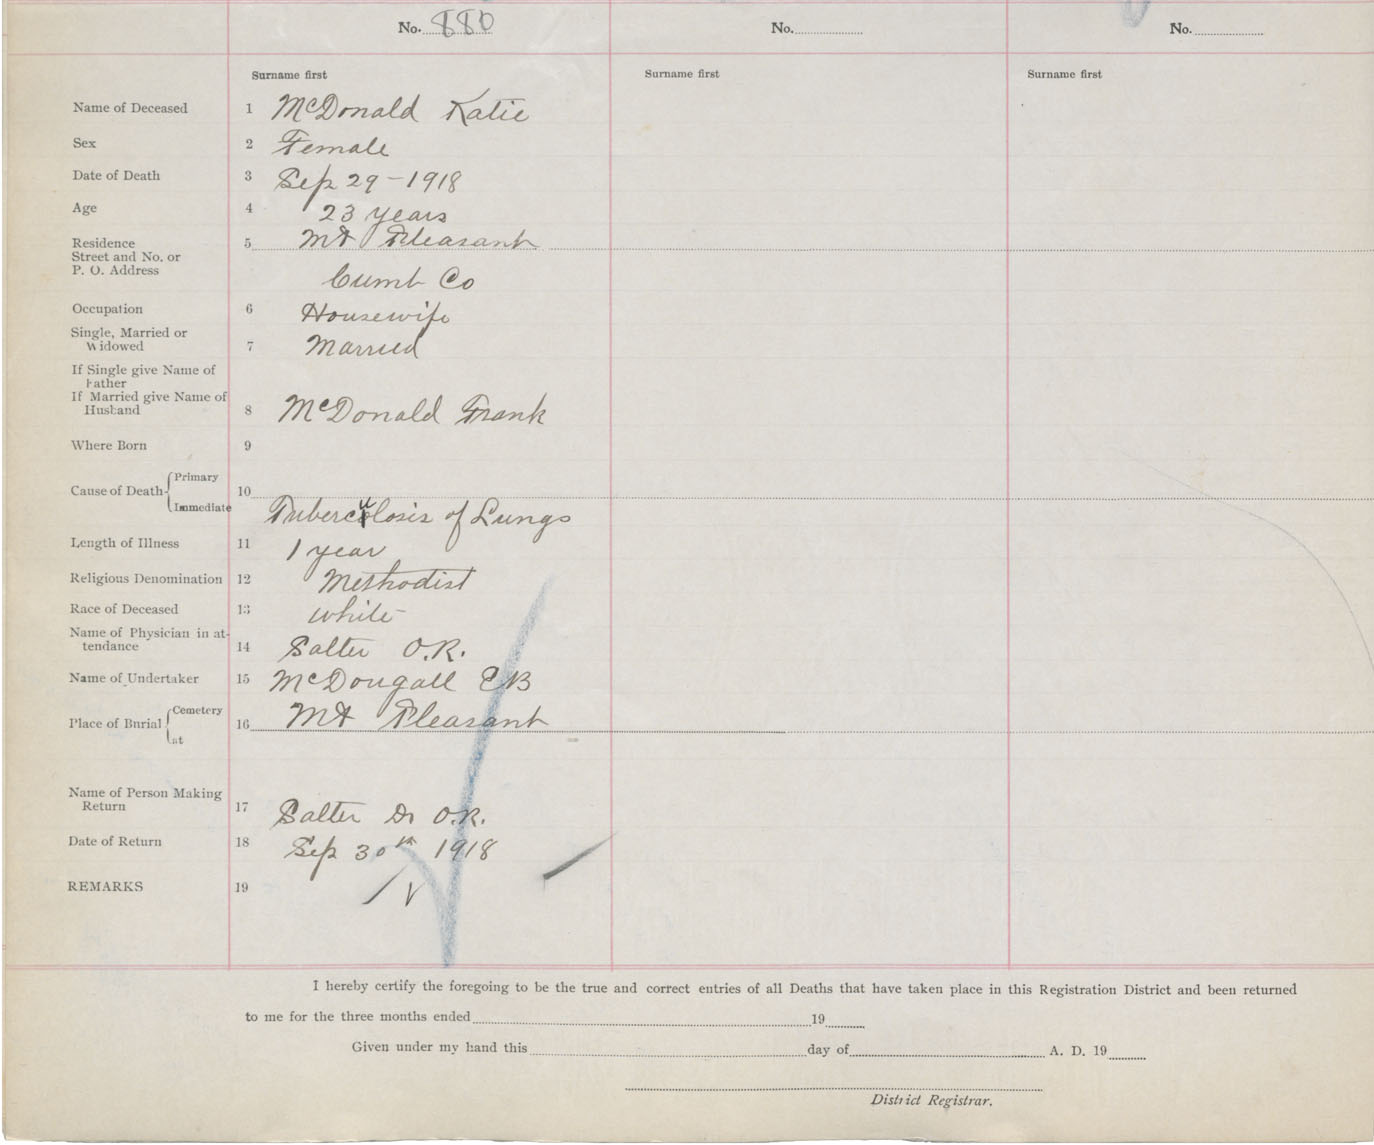 No. 880 No. No.
Surname first Surname first Surname first
Name of Deceased 1 McDonald Katie
Sex 2 Female
Date of Death 3 Sep 29-1918
Age 4 23 years
Residence 5 Mt Pleasant
Street and No. or
P. O. Address Cumb Co
Occupation 6 Housewife
Single, Married or
Widowed 7 Married
If Single give Name of
Father
If Married give Name of
Husband 8 McDonald Frank
Where Born 9
Primary
Cause of Death 10
Immediate Tuberculosis of Lungs
Length of Illness 11 1 year
Religious Denomination 12 Methodist
Race of Deceased 13 white
Name of Physician in at-
tendance 14 Salter O.R.
Name of Undertaker 15 McDougall EB
Cemetery
Place of Burial 16 Mt Pleasant
at
Name of Person Making
Return 17 Salter Dr O.R.
Date of Return 18 Sep 30th 1918
REMARKS 19
I hereby certify the foregoing to be the true and correct entries of all Deaths that have taken place in this Registration District and been returned
to me for the three months ended 19
Given under my hand this day of A. D. 19
District Registrar.